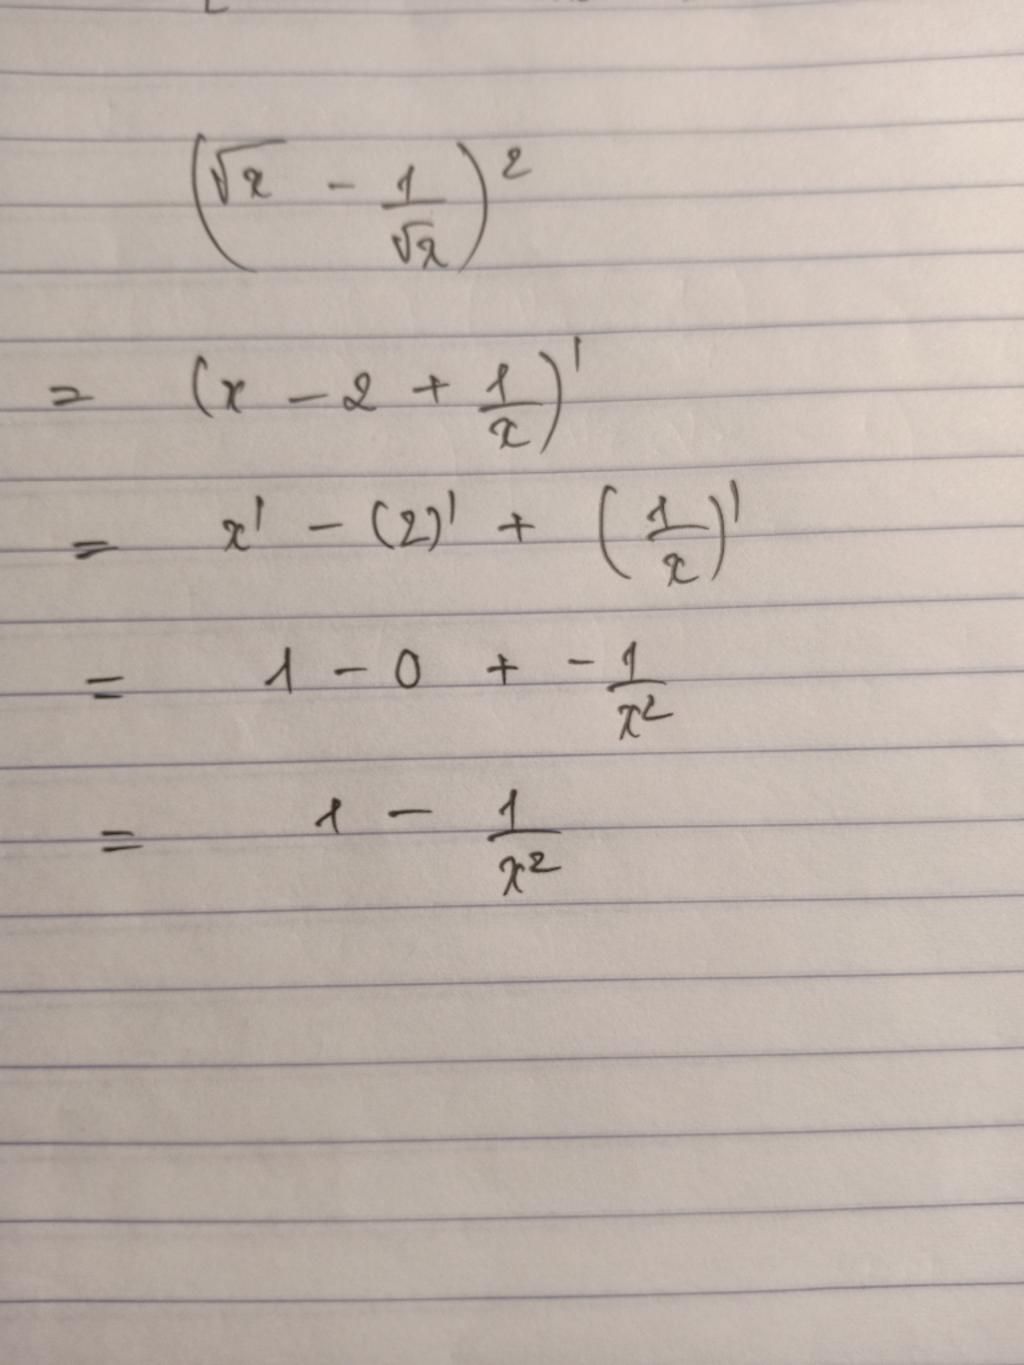 (√x - 1/√x)²
= (x - 2 + 1/x)'
= x' - (2)' + (1/x)'
= 1 - 0 + - 1/x²
= 1 - 1/x²